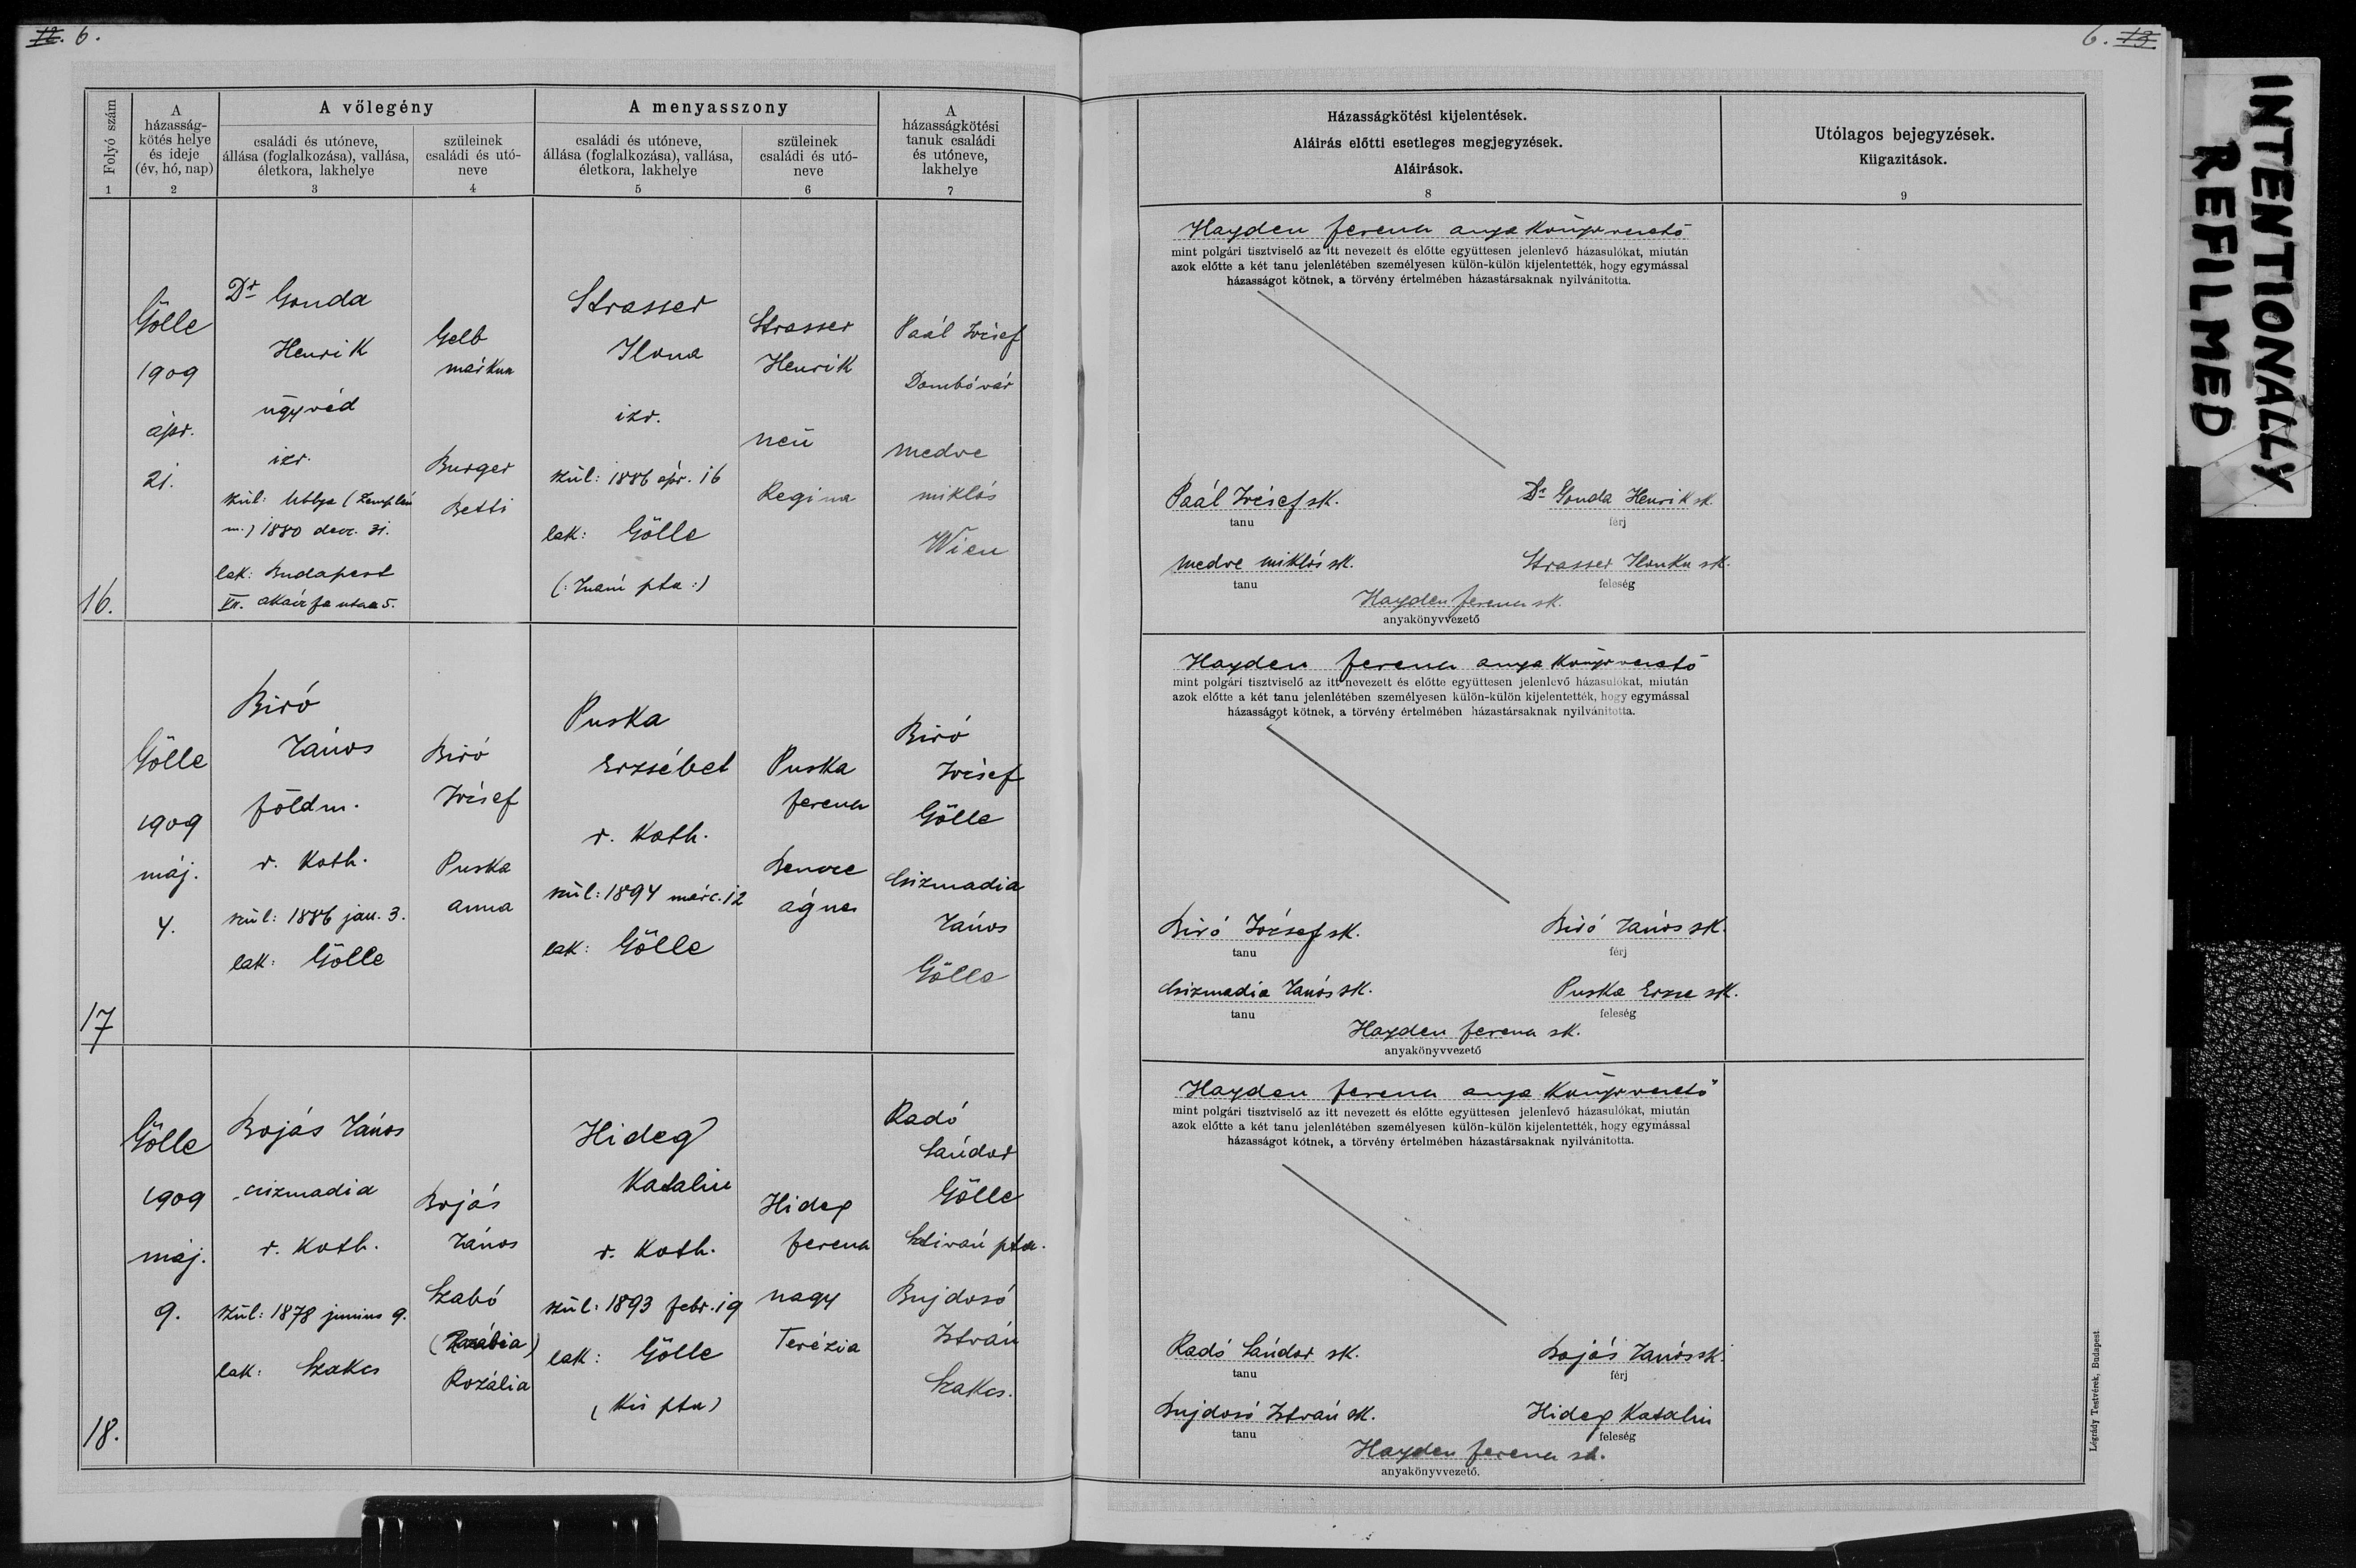 12. 6.
6. 13.
INTENTIONALLY
REFILMED
Folyó szám
1
A
házasság-
kötés helye
és ideje
(év, hó, nap)
2
A vőlegény
családi és utóneve,
állása (foglalkozása), vallása,
életkora, lakhelye
3
szüleinek
családi és utó-
neve
4
A menyasszony
családi és utóneve,
állása (foglalkozása), vallása,
életkora, lakhelye
5
szüleinek
családi és utó-
neve
6
A
házasságkötési
tanuk családi
és utóneve,
lakhelye
7
Házasságkötési kijelentések.
Aláirás előtti esetleges megjegyzések.
Aláirások.
8
Utólagos bejegyzések.
Kiigazitások.
9
16.
Gölle
1909
ápr.
21.
Dr Gonda
Henrik
ügyvéd
izr.
szül: (Zemplén
m.) 1880 decz. 31.
lak: Budapest
VII. akáczfa utca 5.
Gelb
márkus
Burger
Betti
Strasser
Ilona
izr.
szül: 1886 ápr. 16
lak: Gölle
(: pta :)
Strasser
Henrik
neu
Regina
Paál József
Dombóvár
medve
miklós
Wien
Hayden ferencz anyakönyvvezető
mint polgári tisztviselő az itt nevezett és előtte együttesen jelenlevő házasulókat, miután
azok előtte a két tanu jelenlétében személyesen külön-külön kijelentették, hogy egymással
házasságot kötnek, a törvény értelmében házastársaknak nyilvánitotta.
Paál József sk.
tanu
Dr Gonda Henrik sk.
férj
medve miklós sk.
tanu
Strasser Ilonka sk.
feleség
Hayden ferencz sk.
anyakönyvvezető
17
Gölle
1909
máj.
4.
Biró
János
földm.
r. Kath.
szül: 1886 jan. 3.
lak: Gölle
Biró
József
Puska
anna
Puska
Erzsébet
r. Kath.
szül: 1894 márc. 12
lak: Gölle
Puska
ferencz
Bencze
ágnes
Biró
József
Gölle
Csizmadia
János
Gölle
Hayden ferencz anyakönyvvezető
mint polgári tisztviselő az itt nevezett és előtte együttesen jelenlevő házasulókat, miután
azok előtte a két tanu jelenlétében személyesen külön-külön kijelentették, hogy egymással
házasságot kötnek, a törvény értelmében házastársaknak nyilvánitotta.
Biró József sk.
tanu
Biró János sk.
férj
Csizmadia János sk.
tanu
Puska Erzse sk.
feleség
Hayden ferencz sk.
anyakönyvvezető
18.
Gölle
1909
máj.
9.
Bojás János
csizmadia
r. Kath.
szül: 1878 junius 9.
lak: Szakcs
Bojás
János
Szabó
Rozália
Hideg
Katalin
r. Kath.
szül: 1893 febr. 19
lak: Gölle
(Kis pta)
Hideg
ferencz
nagy
Terézia
Radó
Sándor
Gölle
Sztiván pta.
Bujdosó
István
Szakcs.
Hayden ferencz anyakönyvvezető
mint polgári tisztviselő az itt nevezett és előtte együttesen jelenlevő házasulókat, miután
azok előtte a két tanu jelenlétében személyesen külön-külön kijelentették, hogy egymással
házasságot kötnek, a törvény értelmében házastársaknak nyilvánitotta.
Radó Sándor sk.
tanu
Bojás János sk.
férj
Bujdosó István sk.
tanu
Hideg Katalin
feleség
Hayden ferencz sk.
anyakönyvvezető.
Légrády Testvérek, Budapest